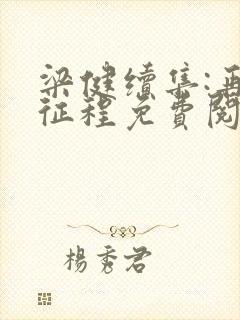 梁健续集:再
征程免費閱
楊秀君